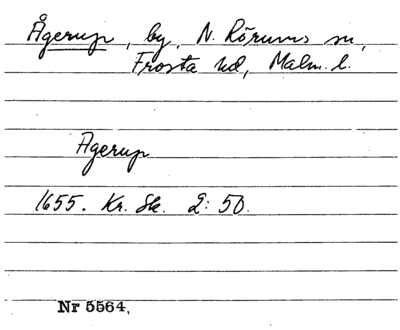 Ågerup, by, N. Rörums sn,
Frosta hd, Malm. l.
Agerup
1655. Kr. Sk. 2: 50.
Nr 5564,